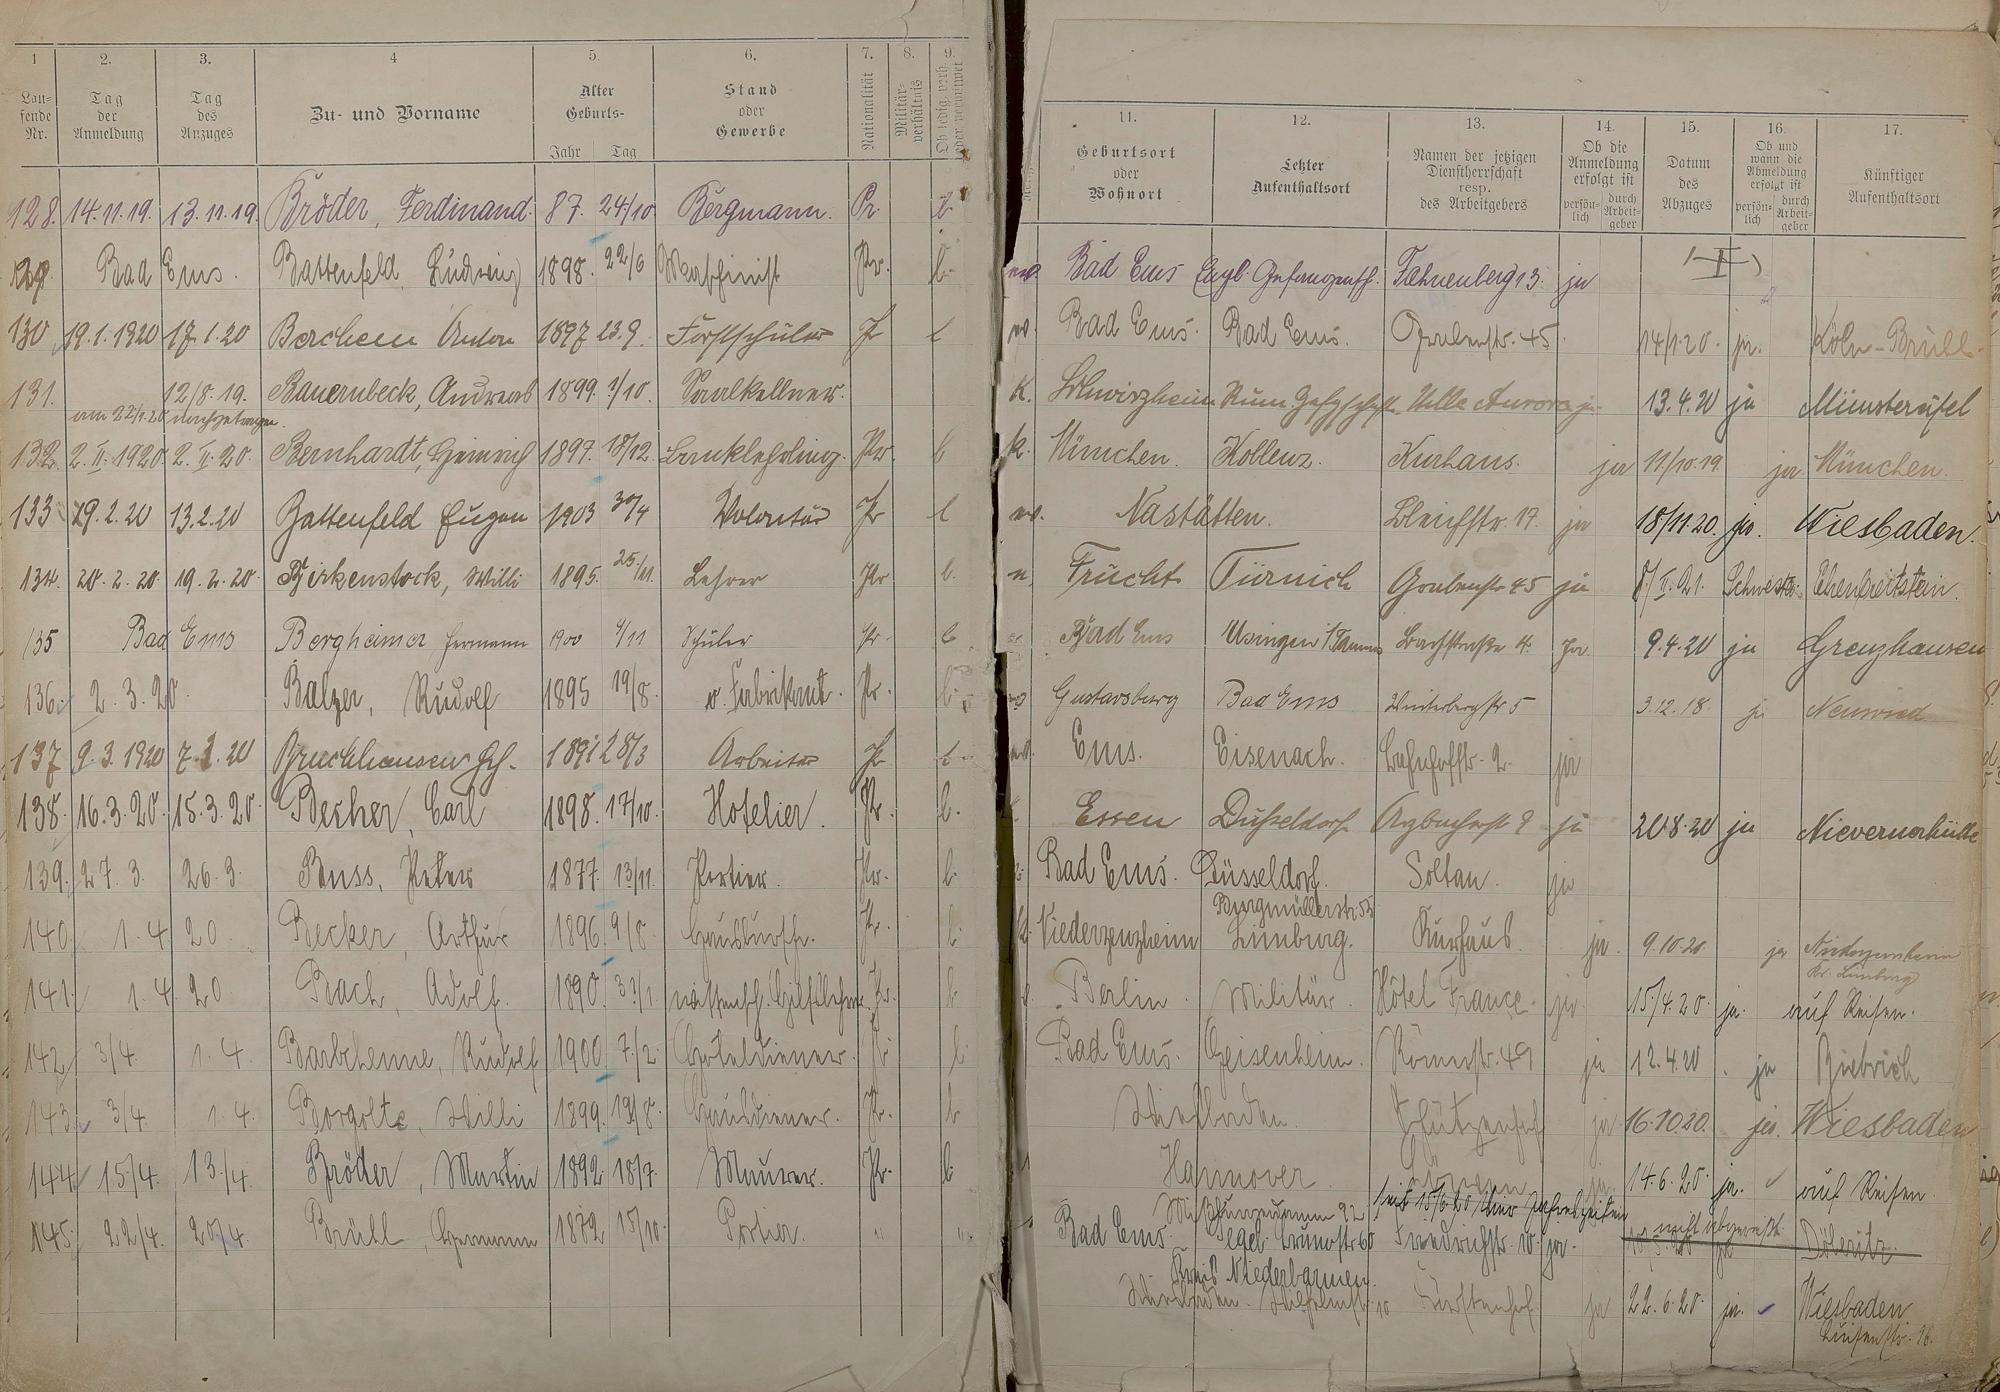 1 2. 3. 4 5. 6. 7. 8. 9.
Lau-
fende
Nr.
Tag
der
Anmeldung
Tag
des
Anzuges
Zu- und Vorname
Alter
Geburts-
Jahr Tag
Stand
oder
Gewerbe
Nationalität
Militär-
verhältnis
Ob ledig, verh.
oder verwitwet
128. 14.11.19. 13.11.19. Bröder, Ferdinand. 87. 24/10 Bergmann. Pr. l.
129. Bad Ems. Battenfeld, Ludwig 1898. 22/6 Maschinist Pr. l.
130 19.1.1920 17.1.20 Berchem Anton 1897 23.9. Forstschüler Pr l
131. 12/8.19. Bauernbeck, Andreas 1899. 1/10. Saalkellner.
am 22/1.20 nachgetragen.
132. 2.II.1920 2.II.20. Bernhardt, Heinrich 1897. 18/12. Banklehrling. Pr. l
133 19.2.20 13.2.20 Battenfeld Eugen 1903 30/4 Volontär Pr l
134. 20.2.20. 19.2.20. Birkenstock, Willi 1895. 25./11. Lehrer Pr l.
135 Bad Ems Bergheimer Hermann 1900 4/11 Schüler Pr. l.
136. 2.3.20. Balzer, Rudolf 1895 19/8. Fabrikant. Pr. l.
137 9.3.1920 7.3.20 Bruckhausen 1891 28/3 Arbeiter Pr l.
138. 16.3.20. 15.3.20. Becher, Carl 1898. 17/10. Hotelier. Pr. l.
139. 27.3. 26.3. Buss, Peter 1877. 13/11. Portier. Pr. l.
140. 1.4. 20. Becker, Arthur 1896 9/8. Hausbursche. Pr. l.
141. 1.4. 20. Bach, Adolf. 1890. Pr. l
142. 3/4. 1.4. Rudolf 1900 7/2. Hoteldiener. Pr l
143. 3/4. 1.4. Borgolte, Willi 1899. 19/8. Hausdiener. Pr. l
144. 15/4. 13./4. Bröder, Martin 1892 18/7. Maurer. Pr. l
145. 22/4. 20./4. Brühl, Hermann 1872 15/10. Portier. " "
11. 12. 13. 14. 15. 16. 17.
Geburtsort
oder
Wohnort
Letzter
Aufenthaltsort
Namen der jetzigen
Dienstherrschaft
resp.
des Arbeitgebers
Ob die
Anmeldung
erfolgt ist
persön-
lich
durch
Arbeit-
geber
Datum
des
Abzuges
Ob und
wann die
Abmeldung
erfolgt ist
persön-
lich
durch
Arbeit-
geber
Künftiger
Aufenthaltsort
Bad Ems Engl. Gefangensch. Fahnenberg 13. ja
Bad Ems. Bad Ems. Grabenstr. 45. 14/1.20. ja. Köln-Brühl.
K. Villa Aurora ja 13.4.20 ja Münstereifel
K. München. Koblenz. Kurhaus. ja 11/10.19. ja München.
Nastätten. Bleichstr. 17. ja 18/11.20. ja. Wiesbaden.
Frücht Türnich Grabenstr 45 ja 8/II.21. Schwester Ehrenbreitstein.
Bad Ems Usingen i/Taunus Bachstraße 4. ja. 9.4.20 ja Grenzhausen
Gustavsburg Bad Ems Winterbergstr 5 3.12.18. ja Neuwied
Ems. Eisenach. Bahnhofstr. 2. ja
Essen Düsseldorf 9 ja 20.8.20 ja Nievernerhütte
Bad Ems. Düsseldorf. Soltau. ja
Burgmüllerstr. 53
K. Niederzeuzheim Limburg. Kurhaus. ja 9.10.20. ja Niederzeuzheim
Kr. Limburg
Berlin. Militär. Hôtel France. ja. 15/4.20. ja. auf Reisen.
Bad Ems. Geisenheim. Römerstr. 49 ja 12.4.20. ja Biebrich
Wiesbaden. Schützenhof ja 16.10.20. ja. Wiesbaden
Hannover. ja. 14.6.20. ja. auf Reisen.
seit 15/6.20 Vier Jahreszeiten
Bad Ems. Tegel. Brunostr 60 Friedrichstr. 10. ja. Döberitz.
Kreis Niederbarmen.
Wiesbaden. 10 Fürstenhof ja 22.6.20. ja. Wiesbaden
Luisenstr. 26.